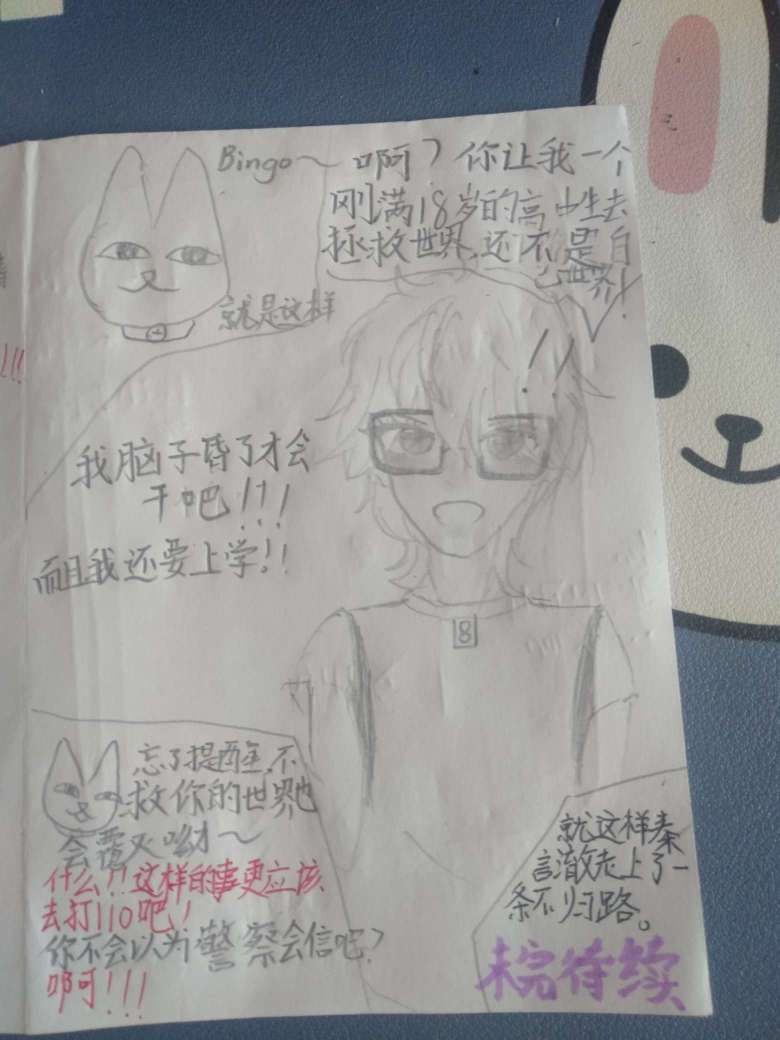 Bingo～
就是这样
啊？你让我一个
刚满18岁的高中生去
拯救世界,还不是自
己世界!
!!
我脑子昏了才会
干吧!!!
而且我还要上学!!
8
忘了提醒,不
救你的世界也
会覆灭呦～
什么!!这样的事更应该
去打110吧!
你不会以为警察会信吧?
啊!!!
就这样秦
言澈走上了一
条不归路。
未完待续
!!!